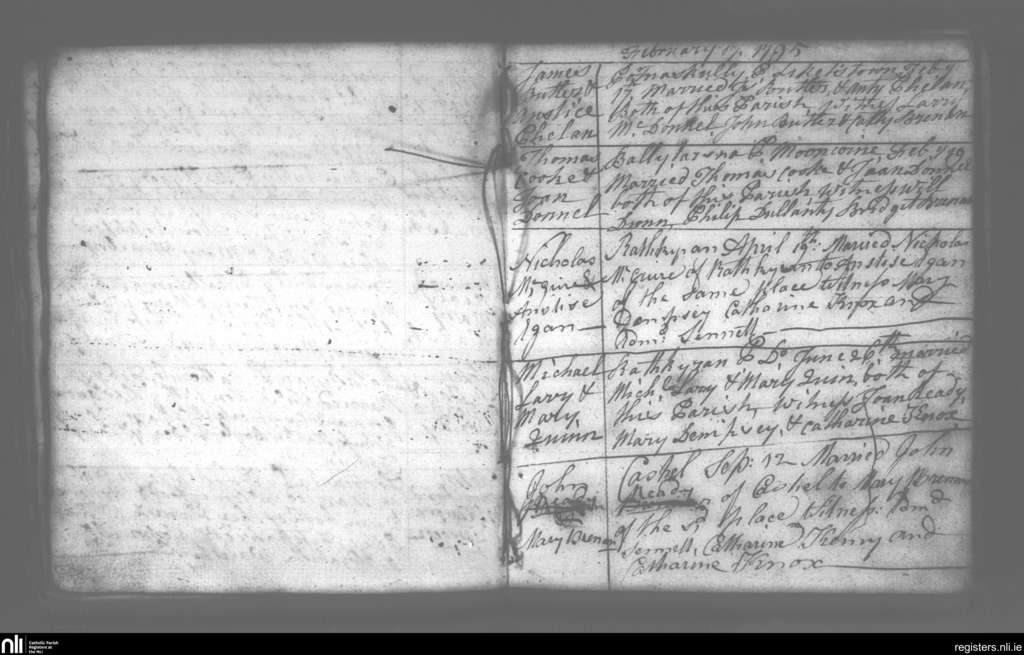 February 17, 1795
James
Butler &
Anstice
Phelan
17 Married Butler, & Phelan,
Both of this Parish Witness Larry
McDonnel John Butler & Cathy Brenan
Thomas
Cooke &
Joan
Donnel
Ballylarona P. Mooncoine Feby 19
Married Thomas Cooke & Joan Donnel
both of this Parish Witness Will
Dunn, Philip Dullanty Bridget Brenan
Nicholas
McGuire &
Anstise
Egan
Rathkyran April 19th: Married Nicholas
McGuire of Rathkyran to Anstise Egan
of the Same place Witness Mary
Dempsey Catharine Knox and
Edmd Sennell
Michael
Larry &
Mary
Quinn
Rathkyran P. Do June 26th married
Michl Lary & Mary Quin, both of
this Parish Witness Joan Ready
Mary Dempsey, & Catharine Knox
John
Ready
&
Mary Brenan
Cashel Sep: 12 Married John
Ready of Cashel to Mary Brenan
of the sd place Witness: Edmd
Sennell, Catharine and
Catharine Knox
nli
Catholic Parish
Registers at
the NLI
registers.nli.ie